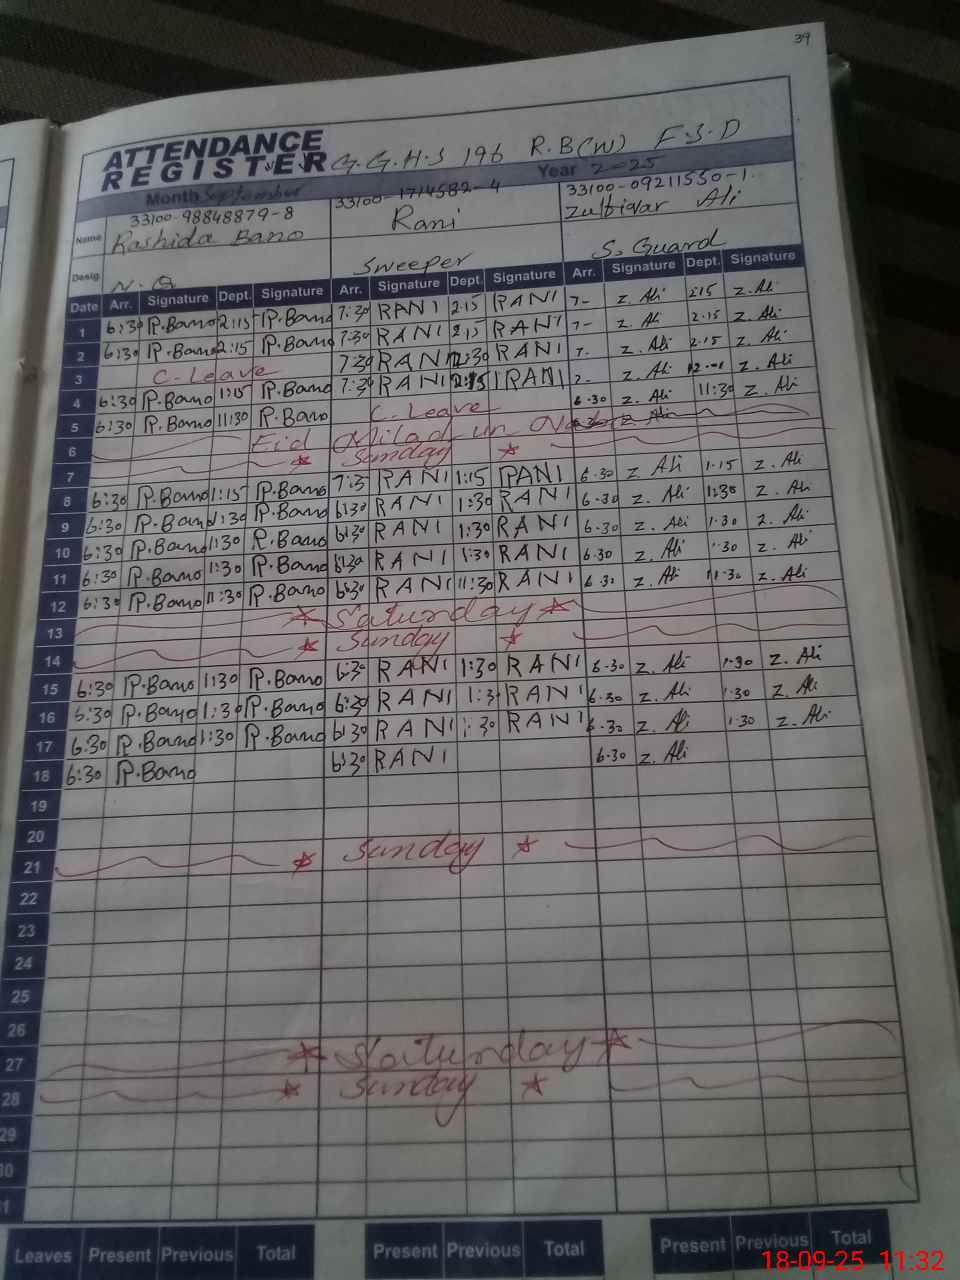 39
ATTENDANCE
REGISTER G.G.H.S 196 R.B(W) F.S.D
Month September Year 2025
33100-98848879-8 33100-1714582-4 33100-09211550-1
Name Rashida Bano Rani Zulfiqar Ali
Desig. N.Q Sweeper S. Guard
Date Arr. Signature Dept. Signature Arr. Signature Dept. Signature Arr. Signature Dept. Signature
1 6:30 R.Bano 2:15 R.Bano 7:30 RANI 2:15 RANI 7- Z. Ali 2:15 Z. Ali
2 6:30 R.Bano 2:15 R.Bano 7:30 RANI 2:15 RANI 7- Z. Ali 2.15 Z. Ali
3 C-Leave 7:30 RANI 12:30 RANI 7- Z. Ali 2.15 Z. Ali
4 6:30 R.Bano 1:15 R.Bano 7:30 RANI 2:15 RANI 7- Z. Ali Z. Ali
5 6:30 R.Bano 11:30 R.Bano C. Leave 6.30 Z. Ali 11:30 Z. Ali
6 Eid Milad un Z. Ali
7 Sunday
8 6:30 R.Bano 1:15 R.Bano 7:3 RANI 1:15 RANI 6-30 Z Ali 1.15 Z. Ali
9 6:30 R.Bano 1:30 R.Bano 6:30 RANI 1:30 RANI 6-30 Z. Ali 1:30 Z. Ali
10 6:30 R.Bano 1:30 R.Bano 6:30 RANI 1:30 RANI 6-30 Z. Ali 1.30 Z. Ali
11 6:30 R.Bano 1:30 R.Bano 6:30 RANI 1:30 RANI 6.30 Z. Ali 1.30 Z. Ali
12 6:30 R.Bano 11:30 R.Bano 6:30 RANI 11:30 RANI 6.30 Z. Ali 11.30 Z. Ali
13 Saturday
14 Sunday
15 6:30 R.Bano 1:30 R.Bano 6:30 RANI 1:30 RANI 6-30 Z. Ali 1.30 Z. Ali
16 6:30 R.Bano 1:30 R.Bano 6:30 RANI 1:30 RANI 6.30 Z. Ali 1.30 Z. Ali
17 6:30 R.Bano 1:30 R.Bano 6:30 RANI 1:30 RANI 6-30 Z. Ali 1.30 Z. Ali
18 6:30 R.Bano 6:30 RANI 6-30 Z. Ali
19
20
21 Sunday
22
23
24
25
26
27 Saturday
28 Sunday
29
30
31
Leaves Present Previous Total Present Previous Total Present Previous Total
18-09-25 11:32